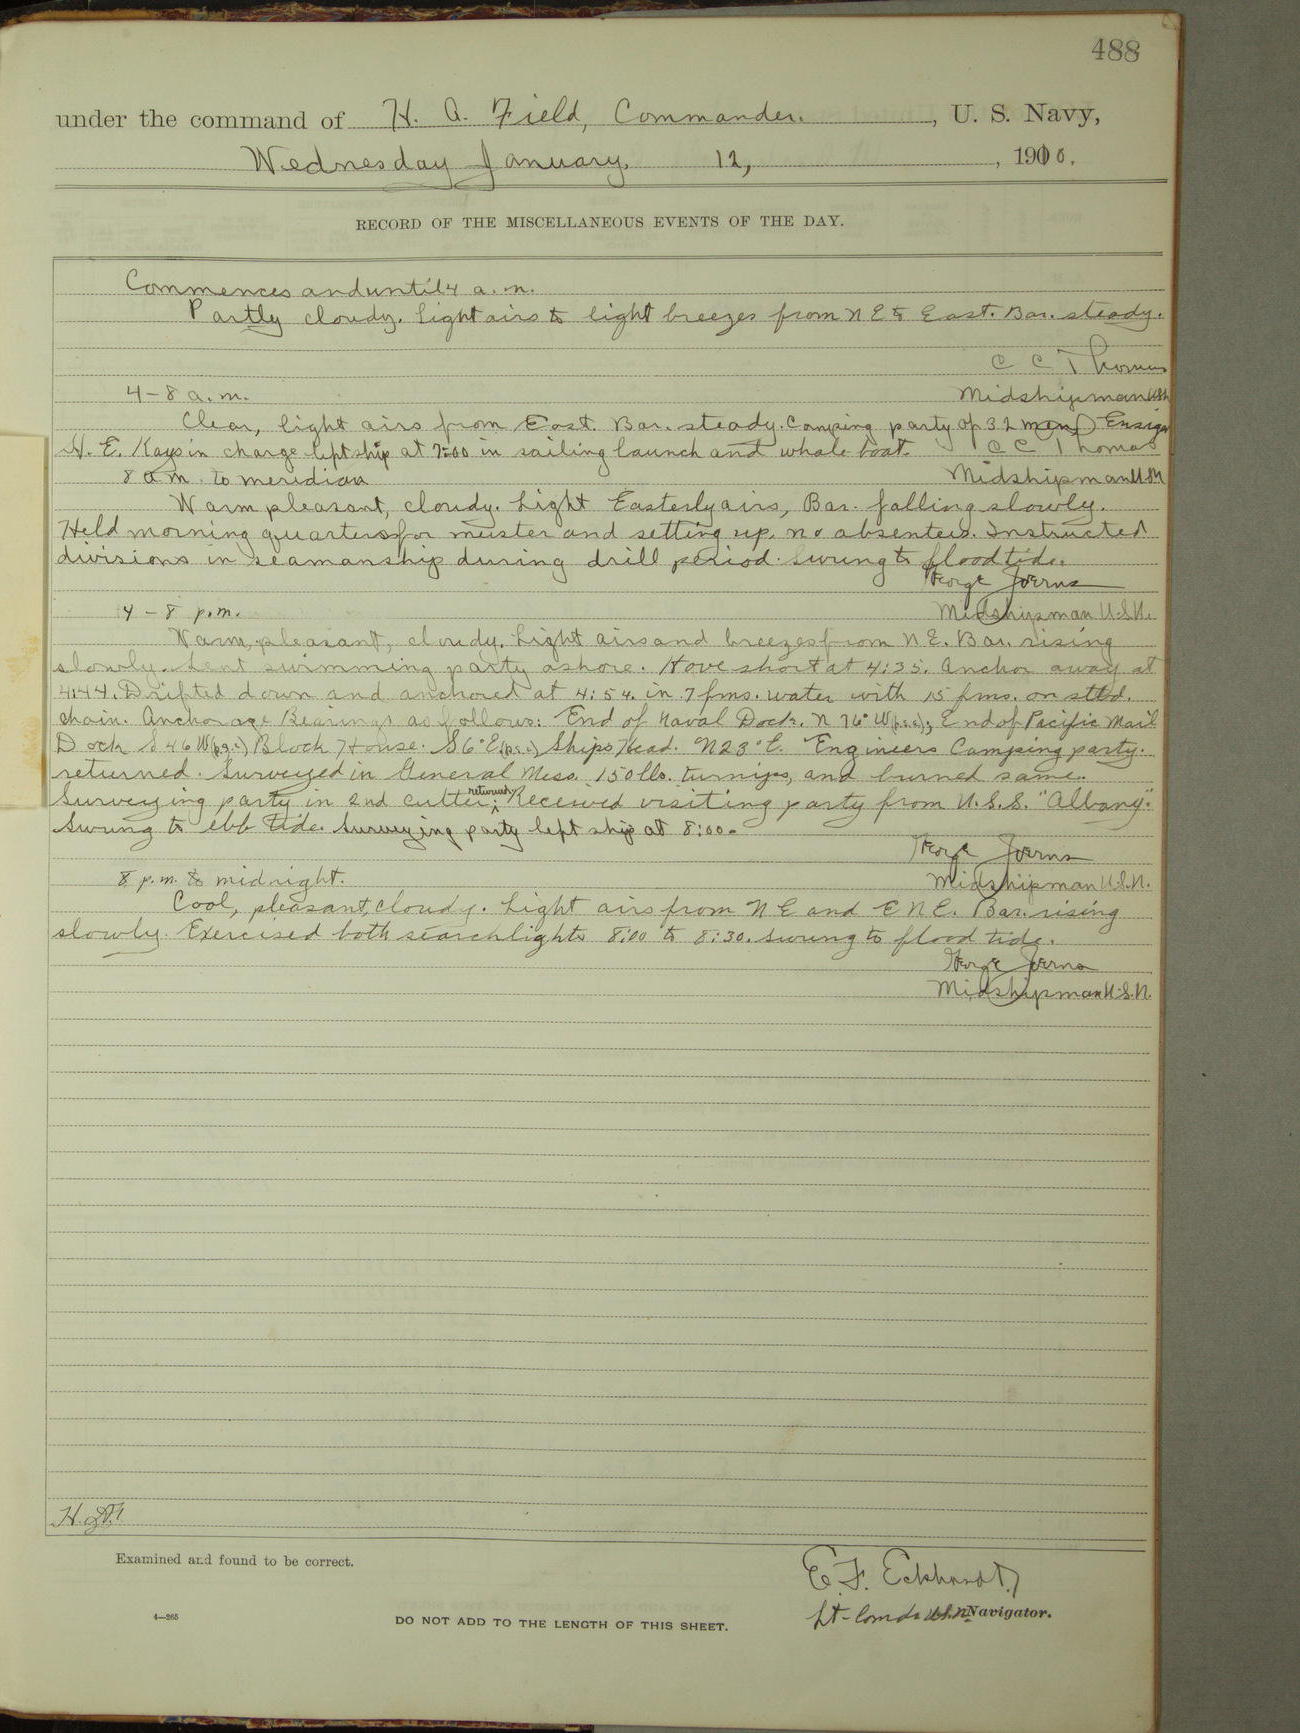 488
under the command of H. A. Field, Commander. , U. S. Navy,
Wednesday January, 12, , 1910.
RECORD OF THE MISCELLANEOUS EVENTS OF THE DAY.
Commences and until 4 a.m.
Partly cloudy. Light airs to light breezes from NE to East. Bar. steady.
C C Thomas
4-8 a.m. Midshipman USN
Clear, light airs from East. Bar. steady. Camping party of 32 men, Ensign
H. E. Kays in charge left ship at 7:00 in sailing launch and whale boat. C C Thomas
8 a.m. to meridian Midshipman USN
Warm pleasant, cloudy. Light Easterly airs, Bar. falling slowly.
Held morning quarters for muster and setting up, no absentees. Instructed
divisions in seamanship during drill period. Swung to flood tide.
George Joerns
4-8 p.m. Midshipman U.S.N.
Warm, pleasant, cloudy. Light airs and breezes from N E. Bar. rising
slowly. Sent swimming party ashore. Hove short at 4:35. Anchor away at
4:44. Drifted down and anchored at 4:54. in 7 fms. water with 15 fms. on stbd.
chain. Anchorage Bearings as follows: End of Naval Dock. N 76° W(p.s.c.); End of Pacific Mail
Dock S 46 W(p.s.c.) Block House. S6°E(p.s.c.) Ships Head. N23°E. Engineers Camping party.
returned. Surveyed in General Mess. 150 lbs. turnips, and burned same.
Surveying party in 2nd cutter returned. Received visiting party from U.S.S. "Albany".
Swung to ebb tide. Surveying party left ship at 8:00.
George Joerns
8 p.m. to midnight. Midshipman U.S.N.
Cool, pleasant, cloudy. Light airs from N E and E N E. Bar. rising
slowly. Exercised both searchlights 8:00 to 8:30. Swung to flood tide.
George Joerns
Midshipman U.S.N.
Examined and found to be correct.
E. F. Eckhardt,
Lt-Comdr U.S.N. Navigator.
4—265
DO NOT ADD TO THE LENGTH OF THIS SHEET.